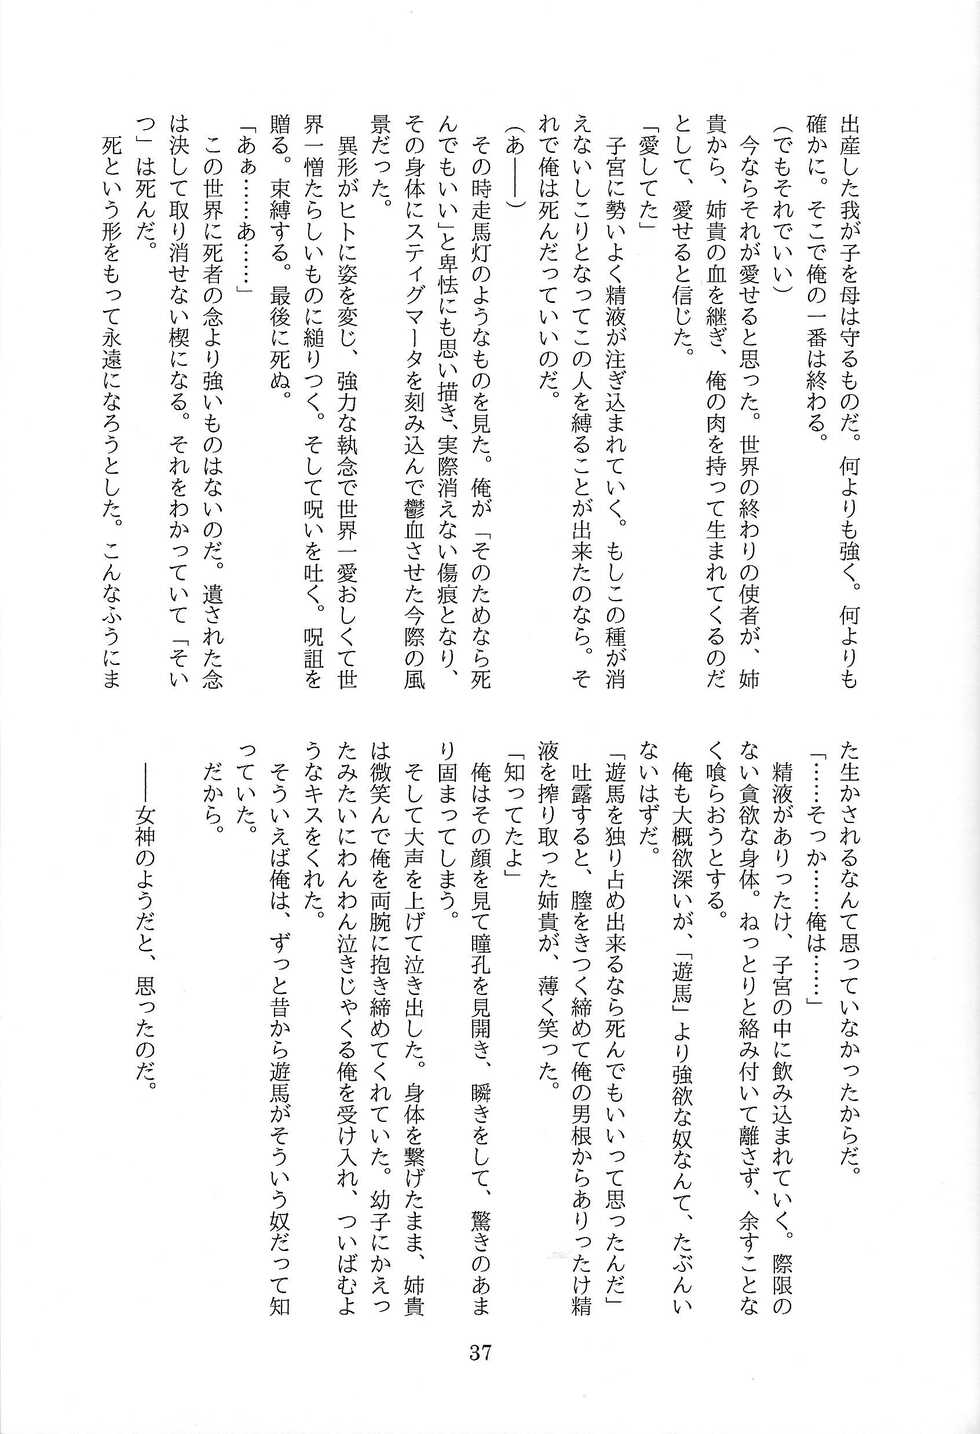 出産した我が子を母は守るものだ。何よりも強く。何よりも
確かに。そこで俺の一番は終わる。
(でもそれでいい)
今ならそれが愛せると思った。世界の終わりの使者が、姉
貴から、姉貴の血を継ぎ、俺の肉を持って生まれてくるのだ
として、愛せると信じた。
「愛してた」
子宮に勢いよく精液が注ぎ込まれていく。もしこの種が消
えないしこりとなってこの人を縛ることが出来たのなら。そ
れで俺は死んだっていいのだ。
(あ――)
その時走馬灯のようなものを見た。俺が「そのためなら死
んでもいい」と卑怯にも思い描き、実際消えない傷痕となり、
その身体にスティグマータを刻み込んで鬱血させた今際の風
景だった。
異形がヒトに姿を変じ、強力な執念で世界一愛おしくて世
界一憎たらしいものに縋りつく。そして呪いを吐く。呪詛を
贈る。束縛する。最後に死ぬ。
「あぁ……あ……」
この世界に死者の念より強いものはないのだ。遺された念
は決して取り消せない楔になる。それをわかっていて「そい
つ」は死んだ。
死という形をもって永遠になろうとした。こんなふうにま
た生かされるなんて思っていなかったからだ。
「……そっか……俺は……」
精液がありったけ、子宮の中に飲み込まれていく。際限の
ない貪欲な身体。ねっとりと絡み付いて離さず、余すことな
く喰らおうとする。
俺も大概欲深いが、「遊馬」より強欲な奴なんて、たぶんい
ないはずだ。
「遊馬を独り占め出来るなら死んでもいいって思ったんだ」
吐露すると、膣をきつく締めて俺の男根からありったけ精
液を搾り取った姉貴が、薄く笑った。
「知ってたよ」
俺はその顔を見て瞳孔を見開き、瞬きをして、驚きのあま
り固まってしまう。
そして大声を上げて泣き出した。身体を繋げたまま、姉貴
は微笑んで俺を両腕に抱き締めてくれていた。幼子にかえっ
たみたいにわんわん泣きじゃくる俺を受け入れ、ついばむよ
うなキスをくれた。
そういえば俺は、ずっと昔から遊馬がそういう奴だって知
っていた。
だから。
――女神のようだと、思ったのだ。
37